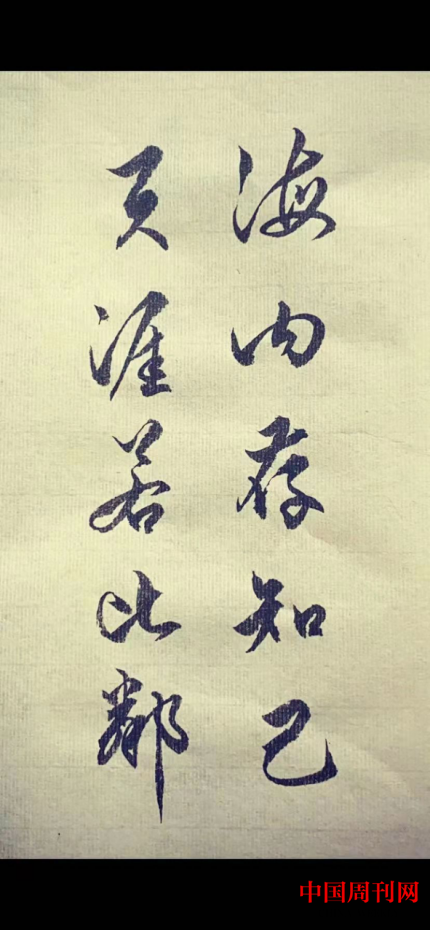 海内存知己
天涯若比鄰
中国周刊网